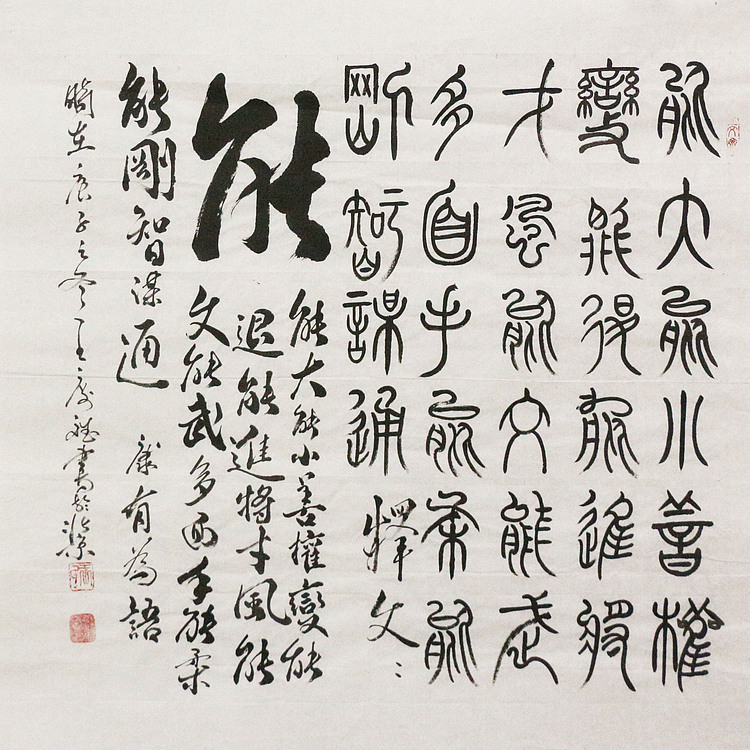 能大能小善權
變能退能進將
才風能文能武
多面手能柔能
剛智謀通釋文:
能
能大能小善權變能
退能進將才風能
文能武多面手能柔
能剛智謀通
康有為語
時在庚子之冬王書於